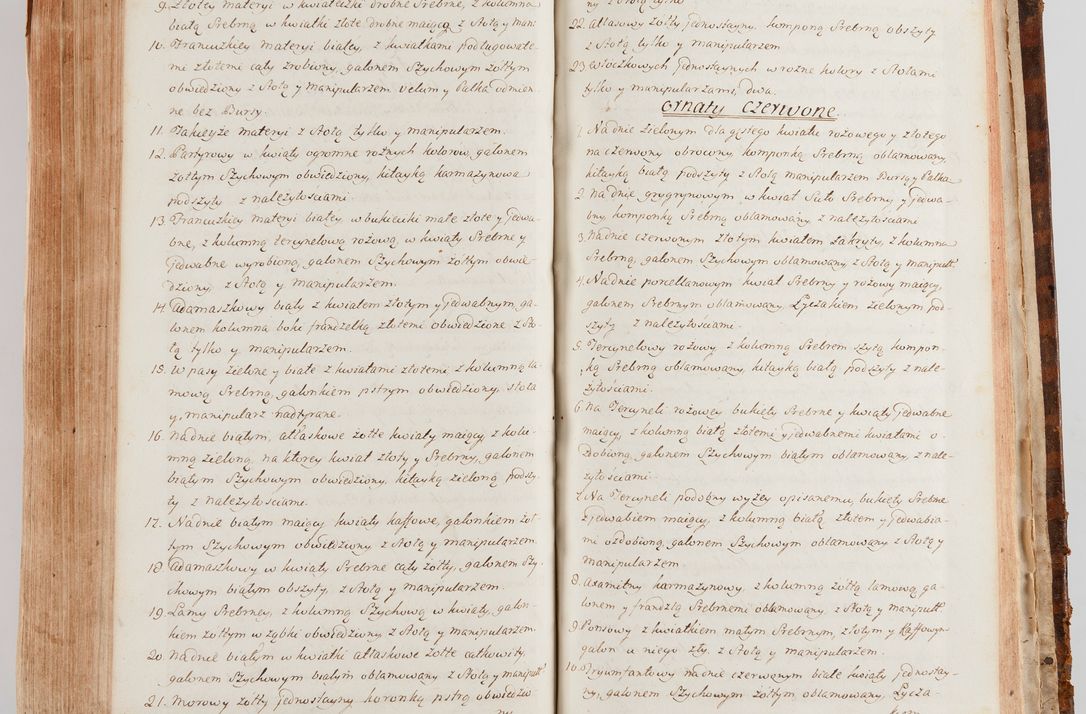 9. Złotey materyi w kwiateczki drobne Srebrne, z kolumna
białą Srebrną w kwiatki złote drobne maiącą z Stołą y Mani:
10. Francuzkiey materyi białey, z kwiatkami podługowate-
mi złotemi cały zrobiony, galonem Szychowym żółtym
obwiedziony z Stołą y Manipularzem. velum y Palka odmien
ne bez Bursy.
11. Takieyże materyi z Stołą tylko y manipularzem.
12. Partyrowy w kwiaty ogromne rożnych kolorow, galonem
żołtym Szychowym obwiedziony, kitayką karmazynową
podszyty z należytościami.
13. Francuzkiey materyi białey w bukieciki małe złote y Jedwa-
bne, z kolumną tercynelową rożową, w kwiaty Srebrne y
Jedwabne wyrobioną, galonem Szychowym żołtym obwie-
dziony z Stołą y manipularzem.
14. Adamaszkowy biały z kwiatem złotym y Jedwabnym, ga-
lonem kolumna boki frandzelką złotemi obwiedzione z Sto-
łą tylko y manipularzem.
15. w pasy zielone y białe z kwiatami złotemi z kolumną la-
mową Srebrną, galonkiem pstrym obwiedziony, stoła
y manipularz nadtyrane.
16. Nadnie białym, atłaskowe żołte kwiaty maiący, z kolu-
mną zieloną, na ktorey kwiat złoty y Srebrny, galonem
białym Szychowym obwiedziony, kitayką zieloną podszy-
ty z należytościami.
17. Nadnie białym maiący kwiaty kaffowe, galonkiem żoł
tym Szychowym obwiedziony z Stołą y manipularzem.
18 Adamaszkowy w kwiaty Srebrne cały żołty, galonem Szy-
chowym białym obszyty, z Stołą y manipularzem.
19. Lamy Srebrney, z kolumną Szychową w kwiaty, galon-
kiem żołtym w ząbki obwiedziony z Stołą y manipularzem.
20. Nadnie białym w kwiatki atłaskowe żołte całkowity,
galonem Szychowym białym oblamowany z Stołą y manipułł
21. Morowy żołty Jednostayny koronką pstrą obwiedzio-
ny z Stołą tylko
22. atłasowy żołty Jednostayny, komponą Srebrną obszyty
z Stołą tylko y manipularzem
23. włoczkowych Jednostaynych w rożne kolory z Stołami
tylko y manipularzami, dwa.
Ornaty Czerwone.
1. Nadnie zielonym dla gęstego kwiatu rożowego y złotego
na czerwony obrocony, komponką Srebrną oblamowany,
kitayką białą podszyty z Stołą manipularzem Bursą y Palka
2. Nadnie gryzgrynowym w kwiat Suto Srebrny y Jedwa-
bny, komponką Srebrną oblamowany z należytościami
3. Nadnie czerwonym złotym kwiatem zakryty, z kolumna
Srebrną, galonem Szychowym oblamowany, z Stołą y manipułł.
4. Nadnie poncellanowym kwiat Srebrny y rożowy maiący,
galonem Srebrnym oblamowany Łyczakiem zielonym pod-
szyty z należytościami.
5. Tercynelowy rożowy z kolumną Srebrem szytą kompon-
ką Srebrną oblamowany, kitayką białą podszyty z nale-
żytościami.
6. Na Tercyneli rożowey bukiety Srebrne y kwiaty Jedwabne
maiący, z kolumną białą złotemi y Jedwabnemi kwiatami o-
zdobioną, galonem Szychowym białym oblamowany, z nale-
żytościami.
7. Na Tercyneli podobny wyżey opisanemu, bukiety Srebrne
z Jedwabiem maiący, z kolumną białą złotem y Jedwabia-
mi ozdobioną, galonem Szychowym oblamowany z Stołą y
manipularzem.
8. Axamitny karmazynowy, z kolumną żołtą lamową, ga-
lonem y frandzlą Srebrnemi oblamowany, z Stołą y manipułł
9. Ponsowy z kwiatkiem małym Srebrnym, złotym y kaffowym
galon u niego zły, z Stołą y manipularzem.
10. Tryumfantowy nadnie czerwonym białe kwiaty Jednostay-
ny, galonem Szychowym żołtym oblamowany, Łycza-